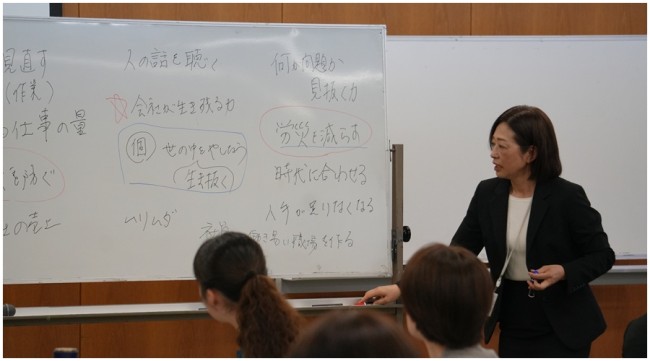 見直す
(作業)
の仕事の量
を防ぐ
の売上
人の話を聴く
会社が生き残る力
個 世の中をやしなう
生き抜く
ムリムダ
何が問題か
見抜く力
労災を減らす
時代に合わせる
人手が足りなくなる
働き易い職場を作る